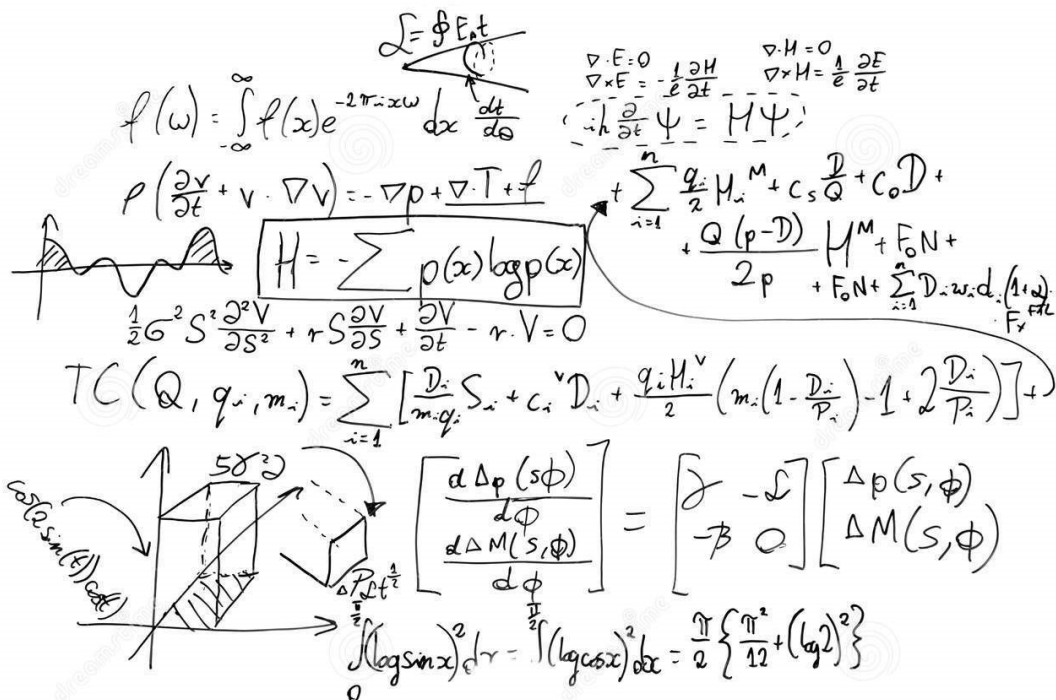 L = ∮ E.t
dt/dθ
∇·E=0 ∇·H=0
∇×E = -1/c ∂H/∂t ∇×H = 1/c ∂E/∂t
f(ω) = ∫_{-∞}^{∞} f(x)e^{-2πixω} dx
iħ ∂/∂t Ψ = HΨ
ρ(∂v/∂t + v · ∇v) = -∇p + ∇·T + f
+ ∑_{i=1}^{n} q_i/2 H_i^M + c_s D/Q + c_o D +
+ Q(p-D)/2p H^M + F_oN +
+ F_oN + ∑_{i=1}^{n} D_i w_i d_i
H = -∑ p(x) log p(x)
1/2 σ² S² ∂²V/∂S² + rS ∂V/∂S + ∂V/∂t - r·V = 0
TC(Q, q_i, m_i) = ∑_{i=1}^{n} [D_i/(m_i q_i) S_i + c_i^v D_i + q_i H_i^v/2 (m_i(1 - D_i/P_i) - 1 + 2 D_i/P_i)] +
[d Δp(sϕ)/dϕ; dΔM(s,ϕ)/dϕ] = [γ -L; -β 0] [Δp(s,ϕ); ΔM(s,ϕ)]
∫_0^{π/2} (log sin x)² dx = ∫^{π/2} (log cos x)² dx = π/2 {π²/12 + (log 2)²}